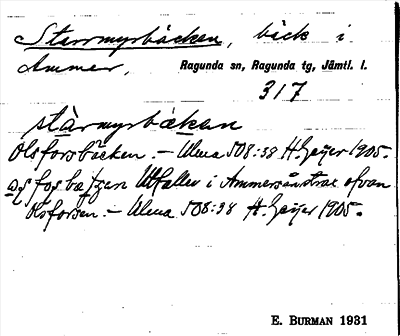 Starrmyrbäcken, bäck i
Ammer, Ragunda sn, Ragunda tg, Jämtl. l.
317
stàrmyrbækan
Olsforsbäcken. — Ulma 508:38 H. Geijer 1905.
Utfaller i Ammersån strax ofvan
Olsforsen. — Ulma 508:38 H. Geijer 1905.
E. BURMAN 1931